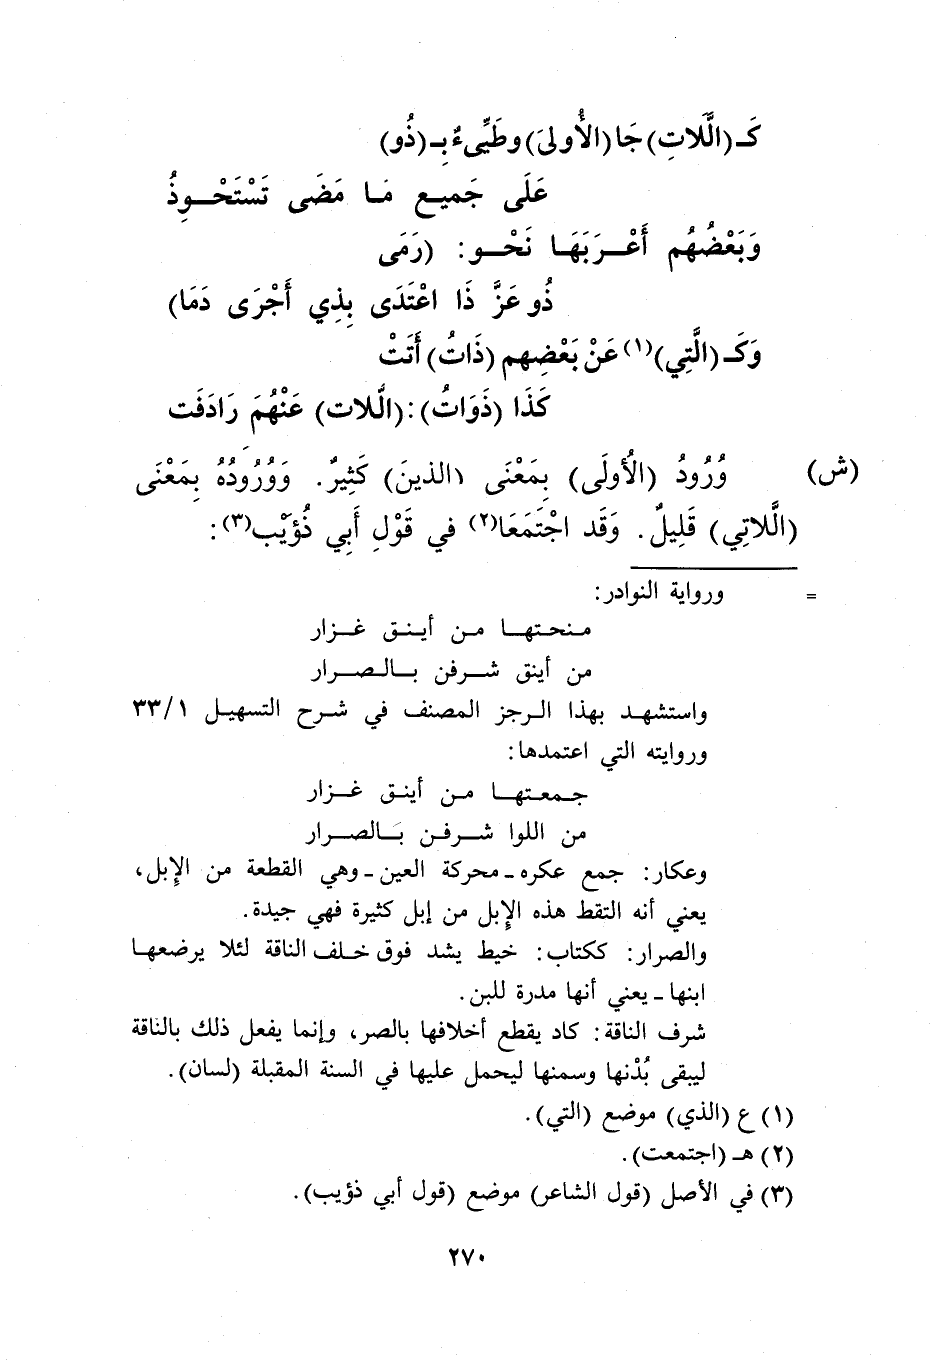 كَـ (الَّلاتِ) جَا (الأُولىَ) وطَيِّىءٌ بِـ (ذُو)
عَلَى جَمِيعِ مَا مَضَى تَسْتَحْوِذُ
وَبَعْضُهُم أَعْرَبَهَا نَحْو: (رَمَى
ذُو عَزَّ ذَا اعْتَدَى بِذِي أَجْرَى دَمَا)
وَكَـ (الَّتِي)(١) عَنْ بَعْضِهِم (ذَاتُ) أَتَتْ
كَذَا (ذَوَاتُ): (الَّلات) عَنْهُمَ رَادَفَت
(ش) وُرُودُ (الْأُولَى) بِمَعْنَى (الذينَ) كَثِيرٌ. وَوُرُودُهُ بِمَعْنَى
(الَّلاتِي) قَلِيلٌ. وَقَد اجْتَمَعَا(٢) في قَوْلِ أَبِي ذُؤَيْب(٣):
= ورواية النوادر:
منحتها من أينق غزار
من أينق شرفن بالصرار
واستشهد بهذا الرجز المصنف في شرح التسهيل ٣٣/١
وروايته التي اعتمدها:
جمعتها من أينق غزار
من اللوا شرفن بَالصرار
وعكار: جمع عكره ـ محركة العين ـ وهي القطعة من الإِبل،
يعني أنه التقط هذه الإِبل من إبل كثيرة فهي جيدة.
والصرار: ككتاب: خيط يشد فوق خلف الناقة لئلا يرضعها
ابنها ـ يعني أنها مدرة للبن.
شرف الناقة: كاد يقطع أخلافها بالصر، وإنما يفعل ذلك بالناقة
ليبقى بُدْنها وسمنها ليحمل عليها في السنة المقبلة (لسان).
(١) ع (الذي) موضع (التي).
(٢) هـ (اجتمعت).
(٣) في الأصل (قول الشاعر) موضع (قول أبي ذؤيب).
٢٧٠